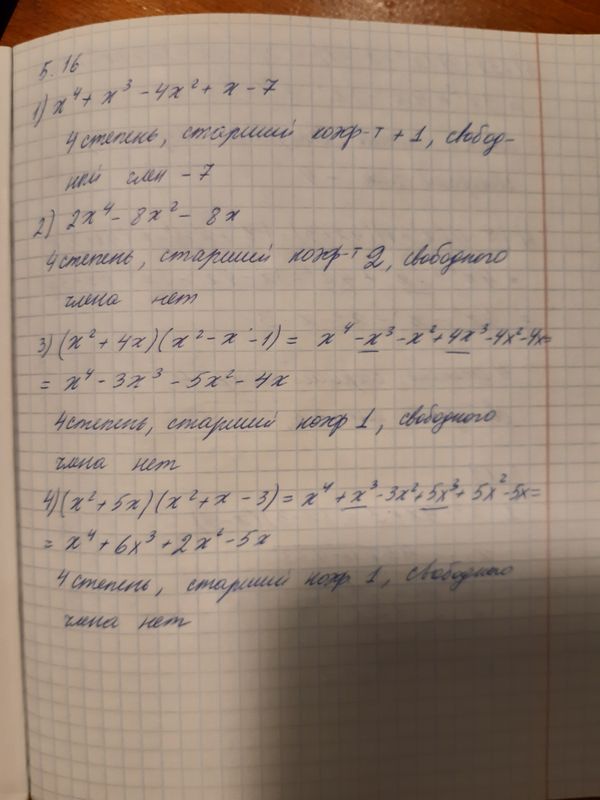 5.16
1) x⁴ + x³ - 4x² + x - 7
4 степень, старший коэф-т + 1, свобод-
ный член - 7
2) 2x⁴ - 8x² - 8x
4 степень, старший коэф-т 2, свободного
члена нет
3) (x² + 4x)(x² - x - 1) = x⁴ - x³ - x² + 4x³ - 4x² - 4x=
= x⁴ - 3x³ - 5x² - 4x
4 степень, старший коэф 1, свободного
члена нет
4) (x² + 5x)(x² + x - 3) = x⁴ + x³ - 3x² + 5x³ + 5x² - 5x =
= x⁴ + 6x³ + 2x² - 5x
4 степень, старший коэф 1, свободного
члена нет